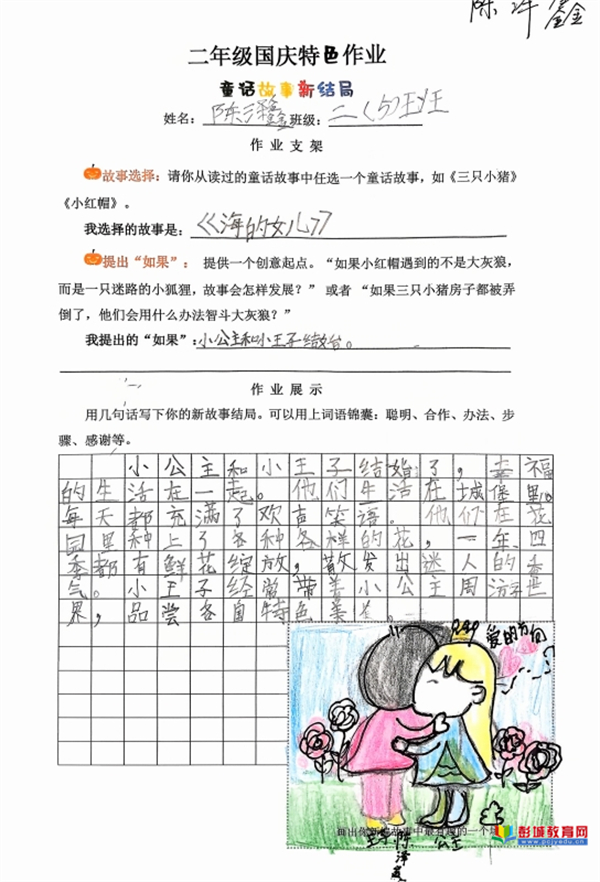 陈泽鑫
二年级国庆特色作业
童话故事新结局
姓名：陈泽鑫 班级：二（5）班
作业支架
故事选择：请你从读过的童话故事中任选一个童话故事，如《三只小猪》
《小红帽》。
我选择的故事是：《海的女儿》
提出“如果”：提供一个创意起点。“如果小红帽遇到的不是大灰狼，
而是一只迷路的小狐狸，故事会怎样发展？”或者“如果三只小猪房子都被弄
倒了，他们会用什么办法智斗大灰狼？”
我提出的“如果”：小公主和小王子结婚。
作业展示
用几句话写下你的新故事结局。可以用上词语锦囊：聪明、合作、办法、步
骤、感谢等。
小公主和小王子结婚了，幸福
的生活在一起。他们生活在城堡里，
每天都充满了欢声笑语。他们在花
园里种上了各种各样的花，一年四
季都有鲜花绽放，散发出迷人的香
气。小王子经常带着小公主周游世
界，品尝各自特色美
爱的方向
画出你新编故事中最有趣的一个场
王子 陈泽鑫
公主
彭城教育网
www.pcjyedu.cn